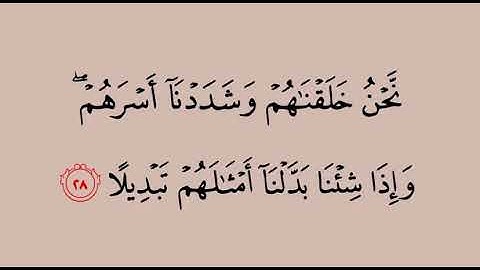 نَّحۡنُ خَلَقۡنَـٰهُمۡ وَشَدَدۡنَآ أَسۡرَهُمۡۖ
وَإِذَا شِئۡنَا بَدَّلۡنَآ أَمۡثَـٰلَهُمۡ تَبۡدِيلًا ٢٨